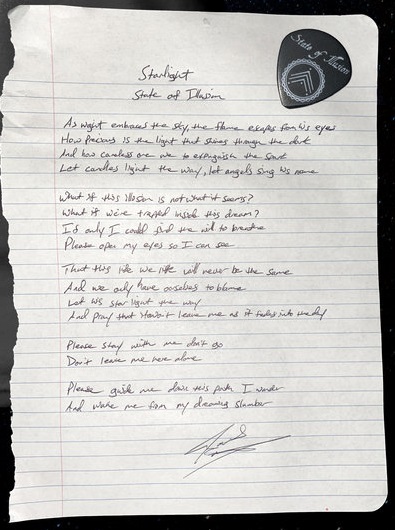 Starlight
State of Illusion
State of Illusion
As night embraces the sky, the flame escapes from his eyes
How Precious is the light that shines through the dark
And how careless are we to extinguish the spark
Let candles light the way, let angels sing his name
What if this illusion is not what it seems?
What if we're trapped inside this dream?
If only I could find the will to breathe
Please open my eyes so I can see
That this life we life will never be the same
And we only have ourselves to blame
Let his star light the way
And pray that it won't leave me as it fades into the day
Please stay with me don't go
Don't leave me here alone
Please guide me down this path I wander
And wake me from my dreaming slumber